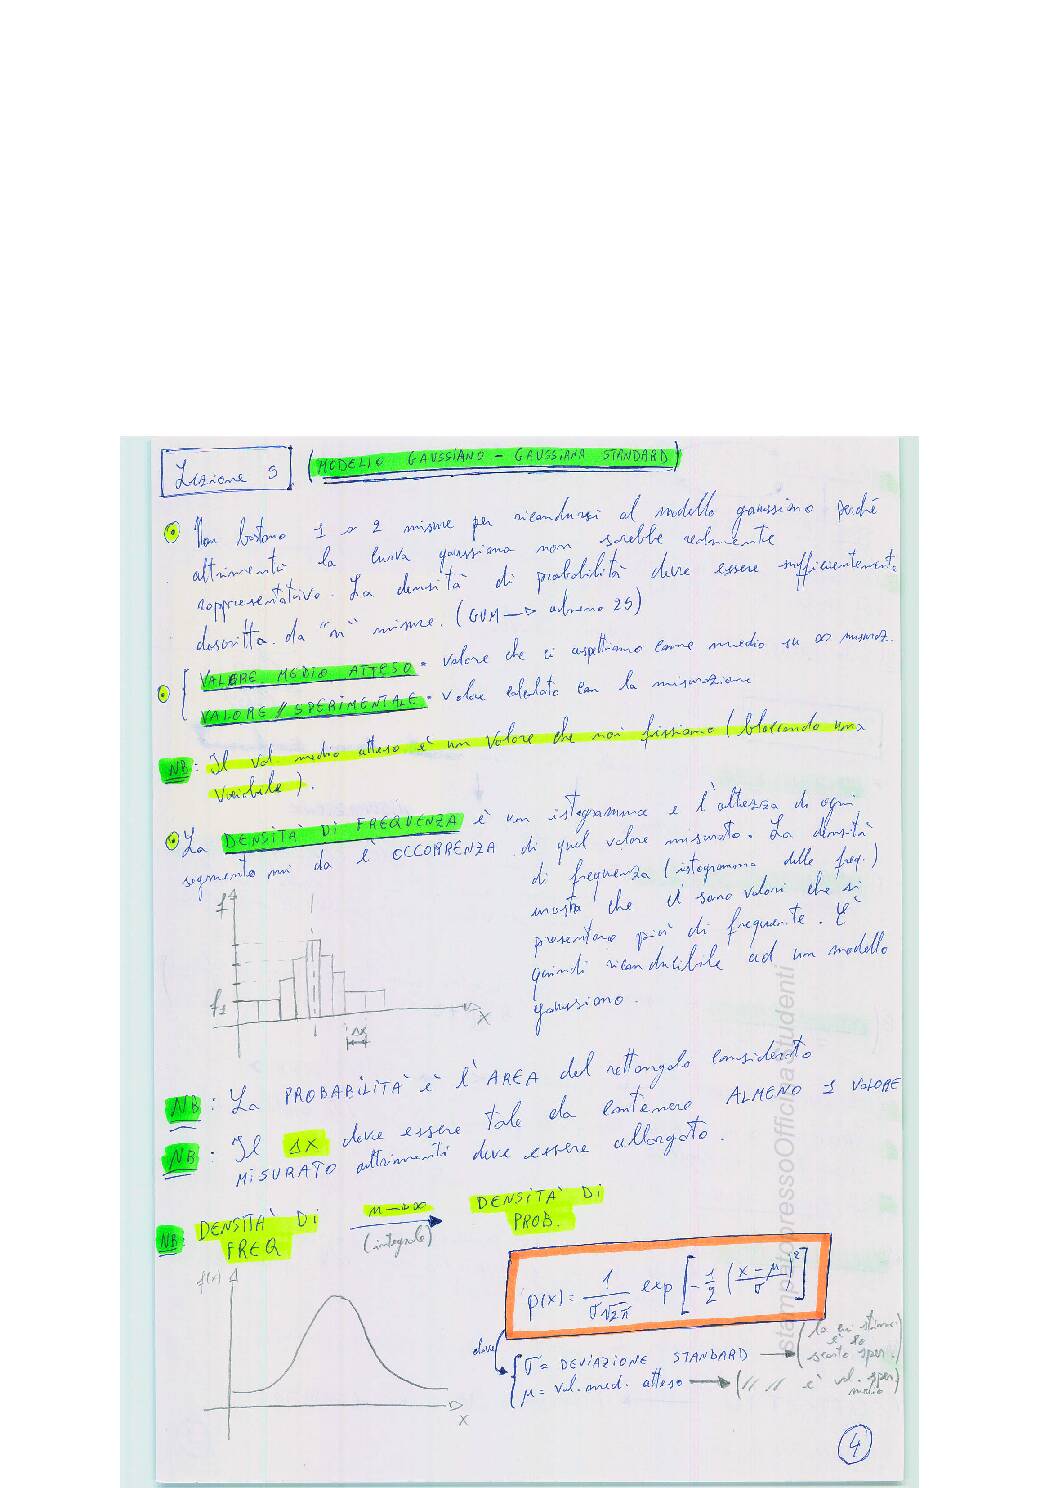 Lezione 5
(MODELLO GAUSSIANO - GAUSSIANA STANDARD)
Non bastano 1 o 2 misure per ricondursi al modello gaussiano perché
altrimenti la curva gaussiana non sarebbe realmente
rappresentativa. La densità di probabilità deve essere sufficientemente
descritta da "n" misure. (GUM → almeno 25)
VALORE MEDIO ATTESO = valore che ci aspettiamo come medio su ∞ misuraz.
VALORE // SPERIMENTALE = valore calcolato con la misurazione
NB: Il val. medio atteso è un valore che noi fissiamo (bloccando una
variabile).
La DENSITÀ DI FREQUENZA è un istogramma e l'altezza di ogni
segmento mi da l'OCCORRENZA di quel valore misurato. La densità
di frequenza (istogramma delle freq.)
mostra che ci sono valori che si
presentano più di frequente. E'
quindi riconducibile ad un modello
gaussiano.
f
f1
x
Δx
NB: La PROBABILITÀ è l'AREA del rettangolo considerato
NB: Il Δx deve essere tale da contenere ALMENO 1 VALORE
MISURATO altrimenti deve essere allargato.
NB: DENSITÀ DI FREQ
n→∞
(integralo)
DENSITÀ DI PROB.
f(x)
x
p(x) = 1/(σ√2π) exp[-1/2 ((x-μ)/σ)²]
dove
σ = DEVIAZIONE STANDARD → (la cui stima è lo scarto sper.)
μ = val. med. atteso → (// // è val. sper medio)
4
stampatopressoOfficinaStudenti